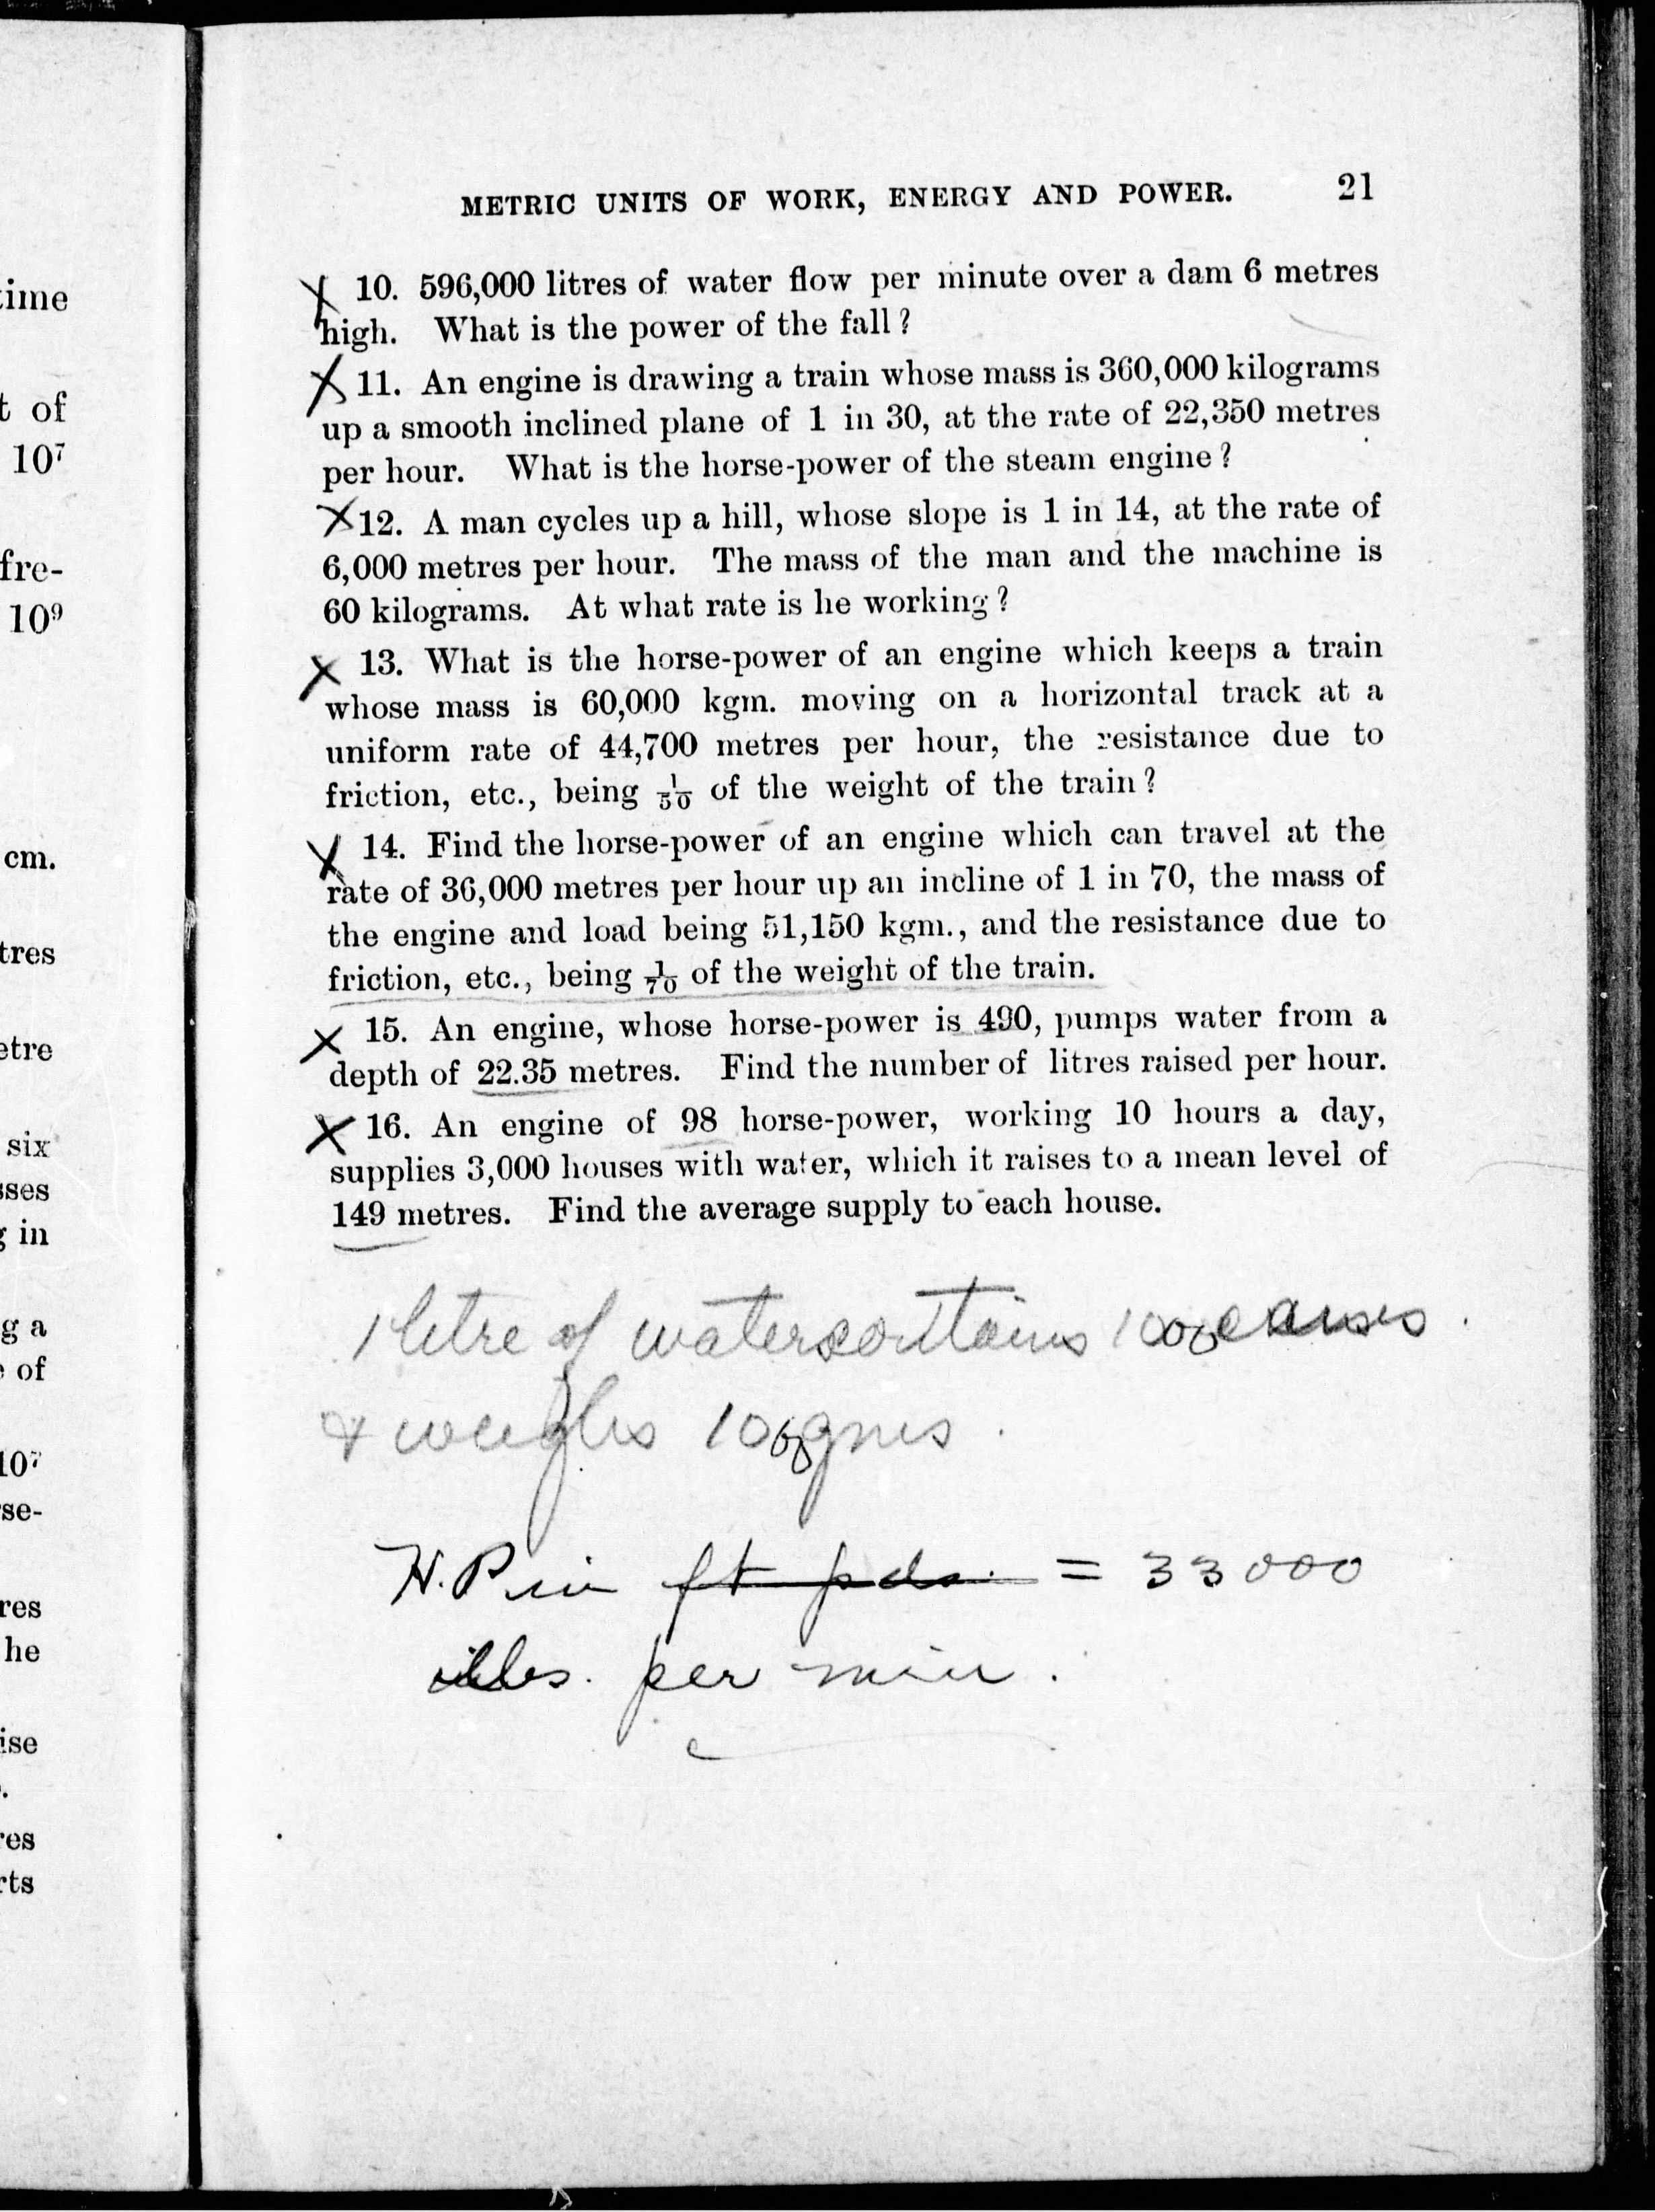 METRIC UNITS OF WORK, ENERGY AND POWER. 21
10. 596,000 litres of water flow per minute over a dam 6 metres
high. What is the power of the fall?
11. An engine is drawing a train whose mass is 360,000 kilograms
up a smooth inclined plane of 1 in 30, at the rate of 22,350 metres
per hour. What is the horse-power of the steam engine?
12. A man cycles up a hill, whose slope is 1 in 14, at the rate of
6,000 metres per hour. The mass of the man and the machine is
60 kilograms. At what rate is he working?
13. What is the horse-power of an engine which keeps a train
whose mass is 60,000 kgm. moving on a horizontal track at a
uniform rate of 44,700 metres per hour, the resistance due to
friction, etc., being 1/50 of the weight of the train?
14. Find the horse-power of an engine which can travel at the
rate of 36,000 metres per hour up an incline of 1 in 70, the mass of
the engine and load being 51,150 kgm., and the resistance due to
friction, etc., being 1/70 of the weight of the train.
15. An engine, whose horse-power is 490, pumps water from a
depth of 22.35 metres. Find the number of litres raised per hour.
16. An engine of 98 horse-power, working 10 hours a day,
supplies 3,000 houses with water, which it raises to a mean level of
149 metres. Find the average supply to each house.
1 litre of water contains 1000
& weighs 1000 gms.
H.P in ft pds. = 33000
per min.
time
t of
10⁷
fre-
10⁹
cm.
tres
etre
six
sses
g in
g a
e of
10⁷
rse-
res
he
ise
res
rts